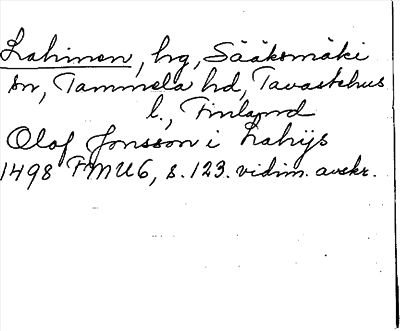 Lahinen, hg, Sääksmäki
sn, Tammela hd, Tavastehus
l., Finland
Olof Jonsson i Lahijs
1498 FMU6, s. 123. vidim. avskr.